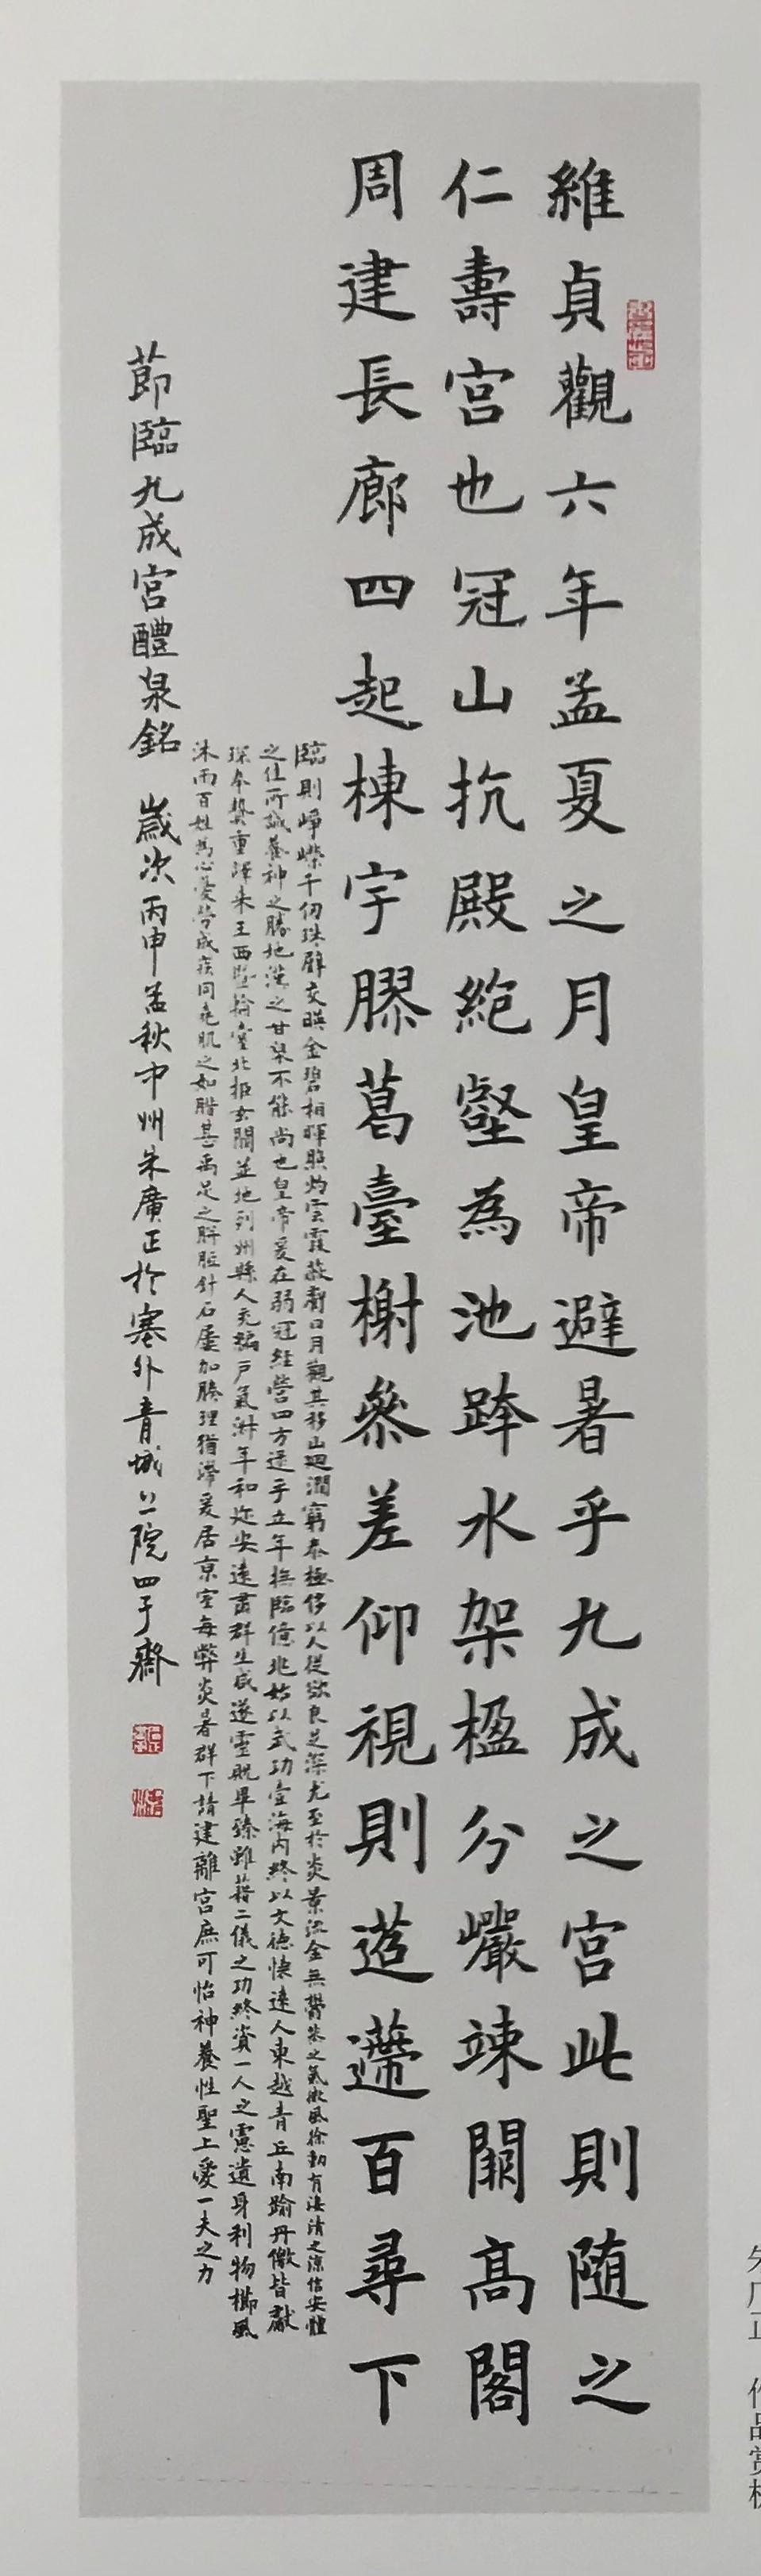 維貞觀六年孟夏之月皇帝避暑乎九成之宮此則隨之
仁壽宮也冠山抗殿絶壑為池跨水架楹分巖竦闕高閣
周建長廊四起棟宇膠葛臺榭參差仰視則迢遰百尋下
臨則崢嶸千仞珠璧交暎金碧相暉照灼雲霞蔽虧日月觀其移山迴澗窮泰極侈以人從欲良足深尤至於炎景流金無鬱蒸之氣微風徐動有淒清之涼信安體
之佳所誠養神之勝地漢之甘泉不能尚也皇帝爰在弱冠經營四方逮乎立年撫臨億兆始以武功壹海內終以文德懷遠人東越青丘南踰丹徼皆獻
琛奉贄重譯來王西暨輪臺北拒玄闕並地列州縣人充編戶氣淑年和邇安遠肅群生咸遂靈貺畢臻雖藉二儀之功終資一人之慮遺身利物櫛風
沐雨百姓為心憂勞成疾同堯肌之如腊甚禹足之胼胝針石屢加腠理猶滯爰居京室每弊炎暑群下請建離宮庶可怡神養性聖上愛一夫之力
節臨九成宮醴泉銘 歲次丙申孟秋中州朱廣正於塞外青城院四于齋
朱广正 作品赏析